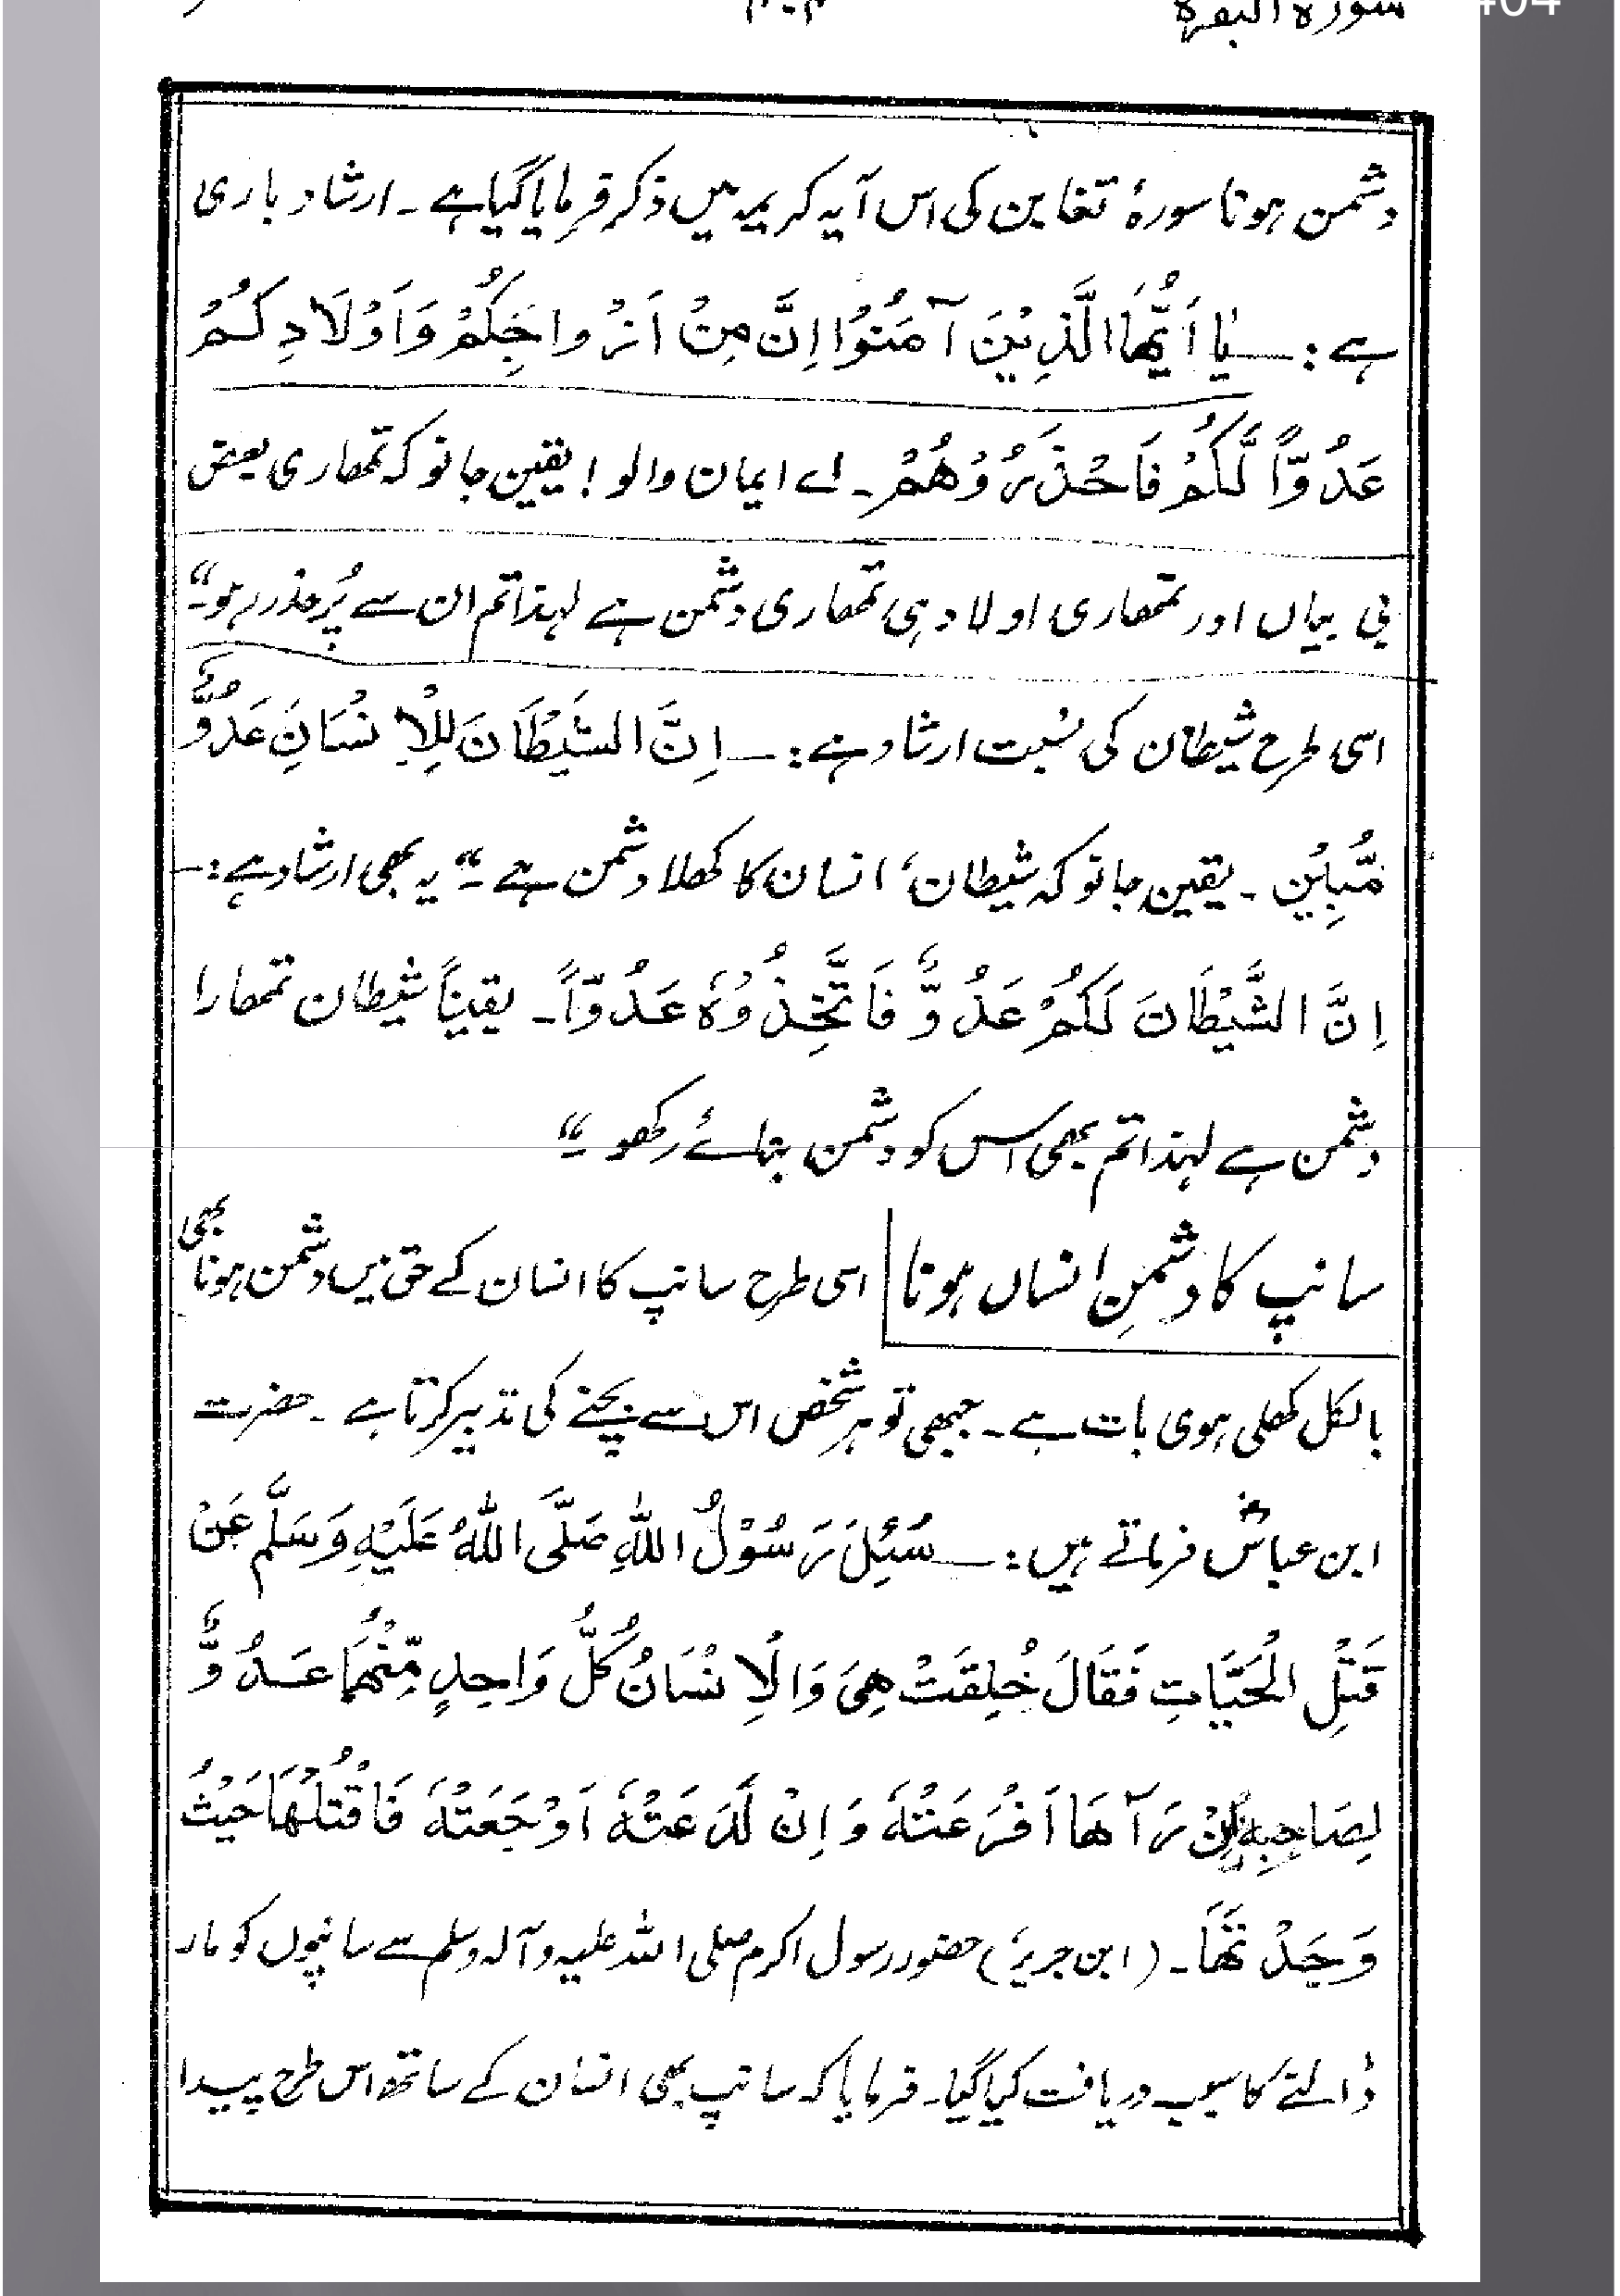 سورة البقرة
404
دشمن ہونا سورۂ تغابن کی اس آیہ کریمہ میں ذکر فرمایا گیا ہے ۔ ارشاد باری
ہے :— یٰا اَیُّھَا الَّذِیْنَ آمَنُوْا اِنَّ مِنْ اَزْوَاجِکُمْ وَاَوْلَادِکُمْ
عَدُوًّا لَّکُمْ فَاحْذَرُوْھُمْ ۔ اے ایمان والو ! یقین جانو کہ تمھاری بعض
بی بیاں اور تمھاری اولاد ہی تمھاری دشمن ہے لہذا تم ان سے پُر حذر رہو ۔“
اسی طرح شیطان کی نسبت ارشاد ہے :— اِنَّ الشَّیْطَانَ لِلْاِنْسَانِ عَدُوٌّ
مُّبِیْن ۔ یقین جانو کہ شیطان، انسان کا کھلا دشمن ہے ۔“ یہ بھی ارشاد ہے :—
اِنَّ الشَّیْطَانَ لَکُمْ عَدُوٌّ فَاتَّخِذُوْہُ عَدُوًّا ۔ یقیناً شیطان تمھارا
دشمن ہے لہذا تم بھی اس کو دشمن بنائے رکھو ۔“
سانپ کا دشمنِ انساں ہونا اسی طرح سانپ کا انسان کے حق میں دشمن ہونا بھی
بالکل کھلی ہوی بات ہے ۔ جبھی تو ہر شخص اس سے بچنے کی تدبیر کرتا ہے ۔ حضرت
ابن عباسؓ فرماتے ہیں :— سُئِلَ رَسُوْلُ اللّٰہِ صَلَّی اللّٰہُ عَلَیْہِ وَسَلَّم عَنْ
قَتْلِ الْحَیَّاتِ فَقَالَ خُلِقَتْ ھِیَ وَالْاِنْسَانُ کُلُّ وَاحِدٍ مِّنْھُمَا عَدُوٌّ
لِصَاحِبِہٖ اِنْ رَآھَا اَفْزَعَتْہُ وَاِنْ لَّدَعَتْہُ اَوْجَعَتْہُ فَاقْتُلْھَا حَیْثُ
وَجَدْتَّھَا ۔ (ابن جریرؒ) حضور رسول اکرم صلی اللہ علیہ وآلہ وسلم سے سانپوں کو مار
ڈالنے کا سبب دریافت کیا گیا ۔ فرمایا کہ سانپ بھی انسان کے ساتھ اس طرح پیدا